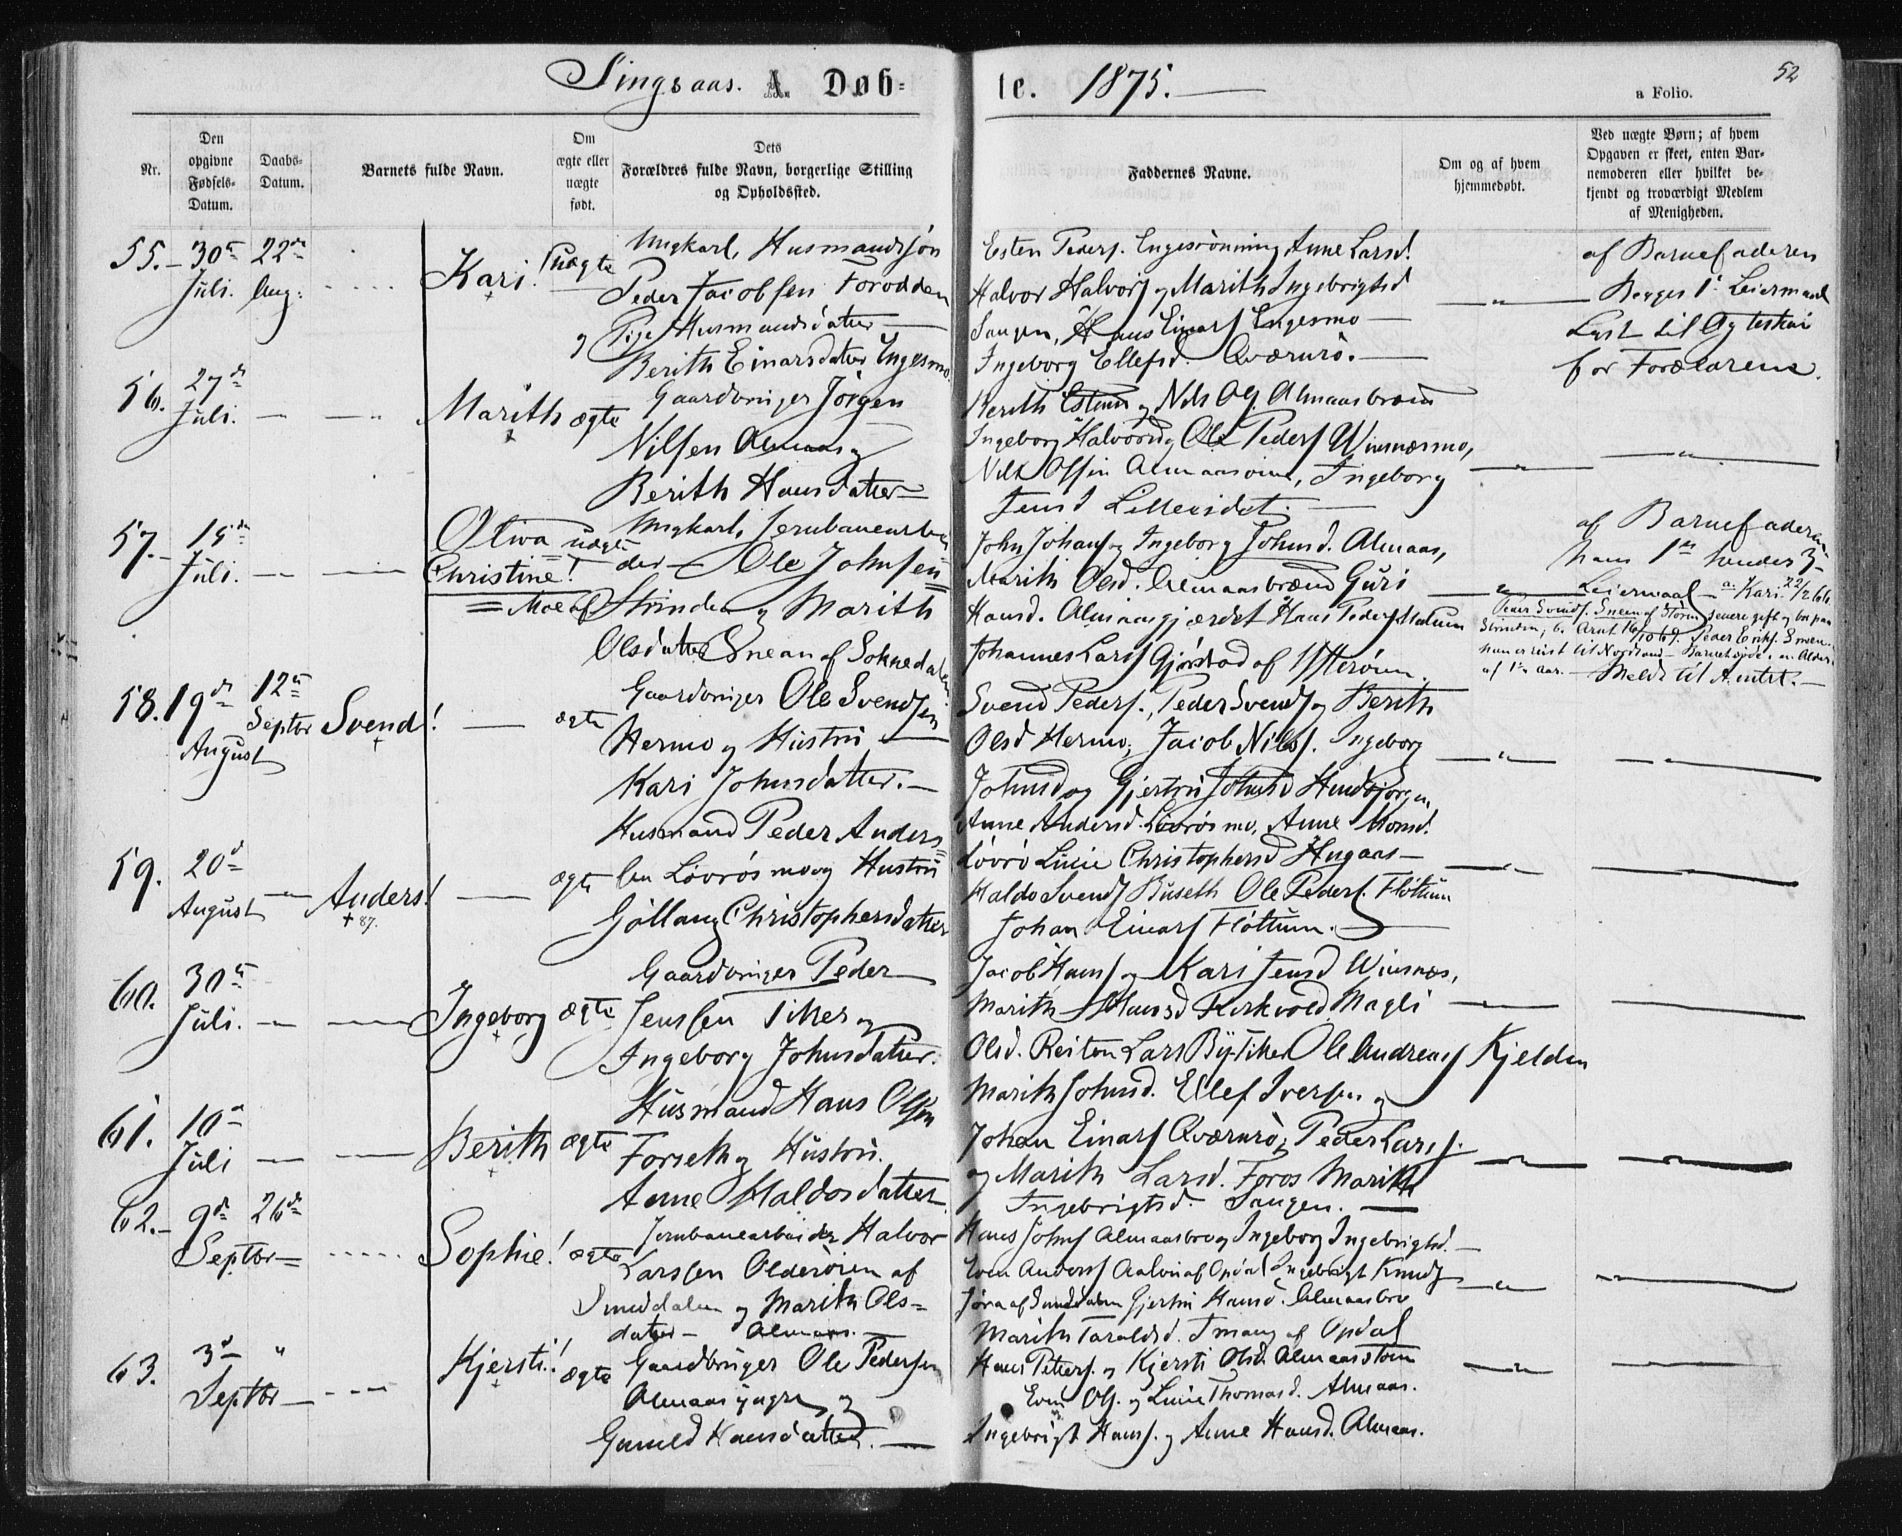 Singsaas. A. Døb-
te. 1875.
a Folio. 52
Nr.
Den opgivne Fødsels-Datum.
Daabs-Datum.
Barnets fulde Navn.
Om ægte eller uægte født.
Dets Forældres fulde Navn, borgerlige Stilling og Opholdssted.
Faddernes Navne.
Om og af hvem hjemmedøbt.
Ved uægte Børn; af hvem Opgaven er skeet, enten Barnemoderen eller hvilket bekjendt og troværdigt Medlem af Menigheden.
55. 30te Juli. 22de Aug. Kari! uægte
Ungkarl, Husmandssøn
Peder Jacobsen Forodden
og Pige Husmandsdatter
Berith Einarsdatter Engesmo
Esten Peders. Engesrønning Anne Larsd.
Halvor Halvors og Marith Ingebrigtsd
Saugen, Hans Einars Engesmo
Ingeborg Ellefsd. Qværnrø.
af Barnefaderen
Begges 1ste Leiermaal
for Forældrene.
56. 27de Juli. Marith ægte
Gaardbruger Jørgen
Nilsen Almaas og
Berith Hansdatter
Berith Estensd og Nils Ols. Almaasbræen
Ingeborg Halvorsd og Ole Peders Winsnesmo,
Ingeborg
Jensd Lillevidet
57. 15de Juli. Oliva Christine! uægte
Ungkarl, Jernbanearbei
der Ole Johnsen
Moe af Strinden og Marith
Olsdatter Sneen af Soknedalen
John Johans og Ingeborg Johnsd. Almaas,
Marith Olsd. Almaasbræen Guri
Hansd. Almaasgjærdet Hans Peders
Johannes Lars Gjørstad af Ytterøen.
af Barnefaderen
hans 1ste hendes 3die
Leiermaal a. Kari 22/2 66
Meldt til Amtet.
58. 19de August 12te Septbr Svend! ægte
Gaardbruger Ole Svendsen
Hermo og Hustru
Kari Johnsdatter.
Svend Peders., Peder Svends og Berith
Olsd Hermo, Jacob Nils. Ingeborg
Johnsd og Gjertru Johnsd
59. 20de August Anders! ægte
+ 87.
Husmand Peder Anders
sen Løvrøsmo og Hustru
Gøllaug Christophersdatter
Anne Andersd. Løvrøsmo, Anne Monsd.
Løvrø Linie Christophersd Hugaas
Haldo Svends Buseth Ole Peders. Fløttum
Johan Einars Fløttum.
60. 30te Juli. Ingeborg ægte
Gaardbruger Peder
Jenssen Tiller og
Ingeborg Johnsdatter.
Jacob Hans og Kari Jensd Winsnes,
Marith Hansd Kirkvold Magli
Olsd. Reiten Lars Ole Andreas Kjelden
61. 10de Juli Berith ægte
Husmand Hans Olsen
Forseth og Hustru.
Anne Haldosdatter
Marith Johnsd. Ellef Iversen og
Johan Einars Qværnrø, Peder Lars.
og Marith Larsd. Foros Marith
Ingebrigtsd. Saugen.
62. 9de Septbr 26de Sophie! ægte
Jernbanearbeider Halvor
Larssen Olderøien af
Sunddalen og Marith Ols-
datter Almaas.
Hans Johns Almaasbro og Ingeborg Ingebrigtsd.
Even Anders Aalvin af Opdal Ingebrigt Knuds
Jøra af Sunddalen Gjertru Hansd. Almaasbro
Marith Taraldsd. af Opdal
63. 3de Septbr Kjersti! ægte
Gaardbruger Ole Pedersen
Almaas yngre og
Gunild Hansdatter.
Hans Peters. og Kjersti Olsd. Almaas
Even Ols. og Linie Thomasd. Almaas.
Ingebrigt Hans. og Anne Hansd. Almaas.